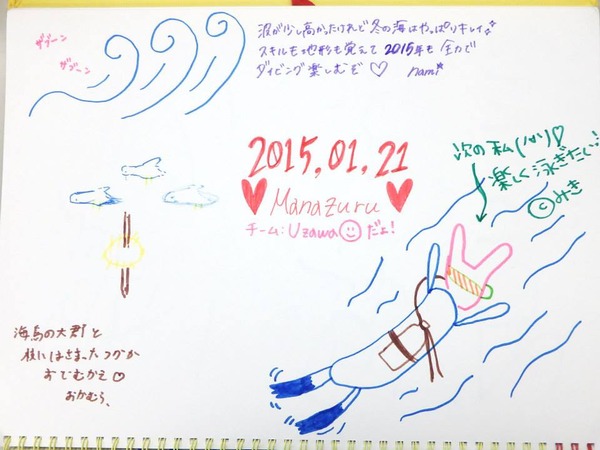 ザブーン
ザブーン
波が少し高かったけれど冬の海はやっぱりキレイ
スキルも地形も覚えて2015年も全力で
ダイビング楽しむぞ♡ nami
2015.01.21
Manazuru
チーム:Uzawa だよ!
次の私(ハッ)♡
楽しく泳ぎたい!
©みき
海鳥の大群と
枝にはさまったフグが
おでむかえ♡
おかむら、